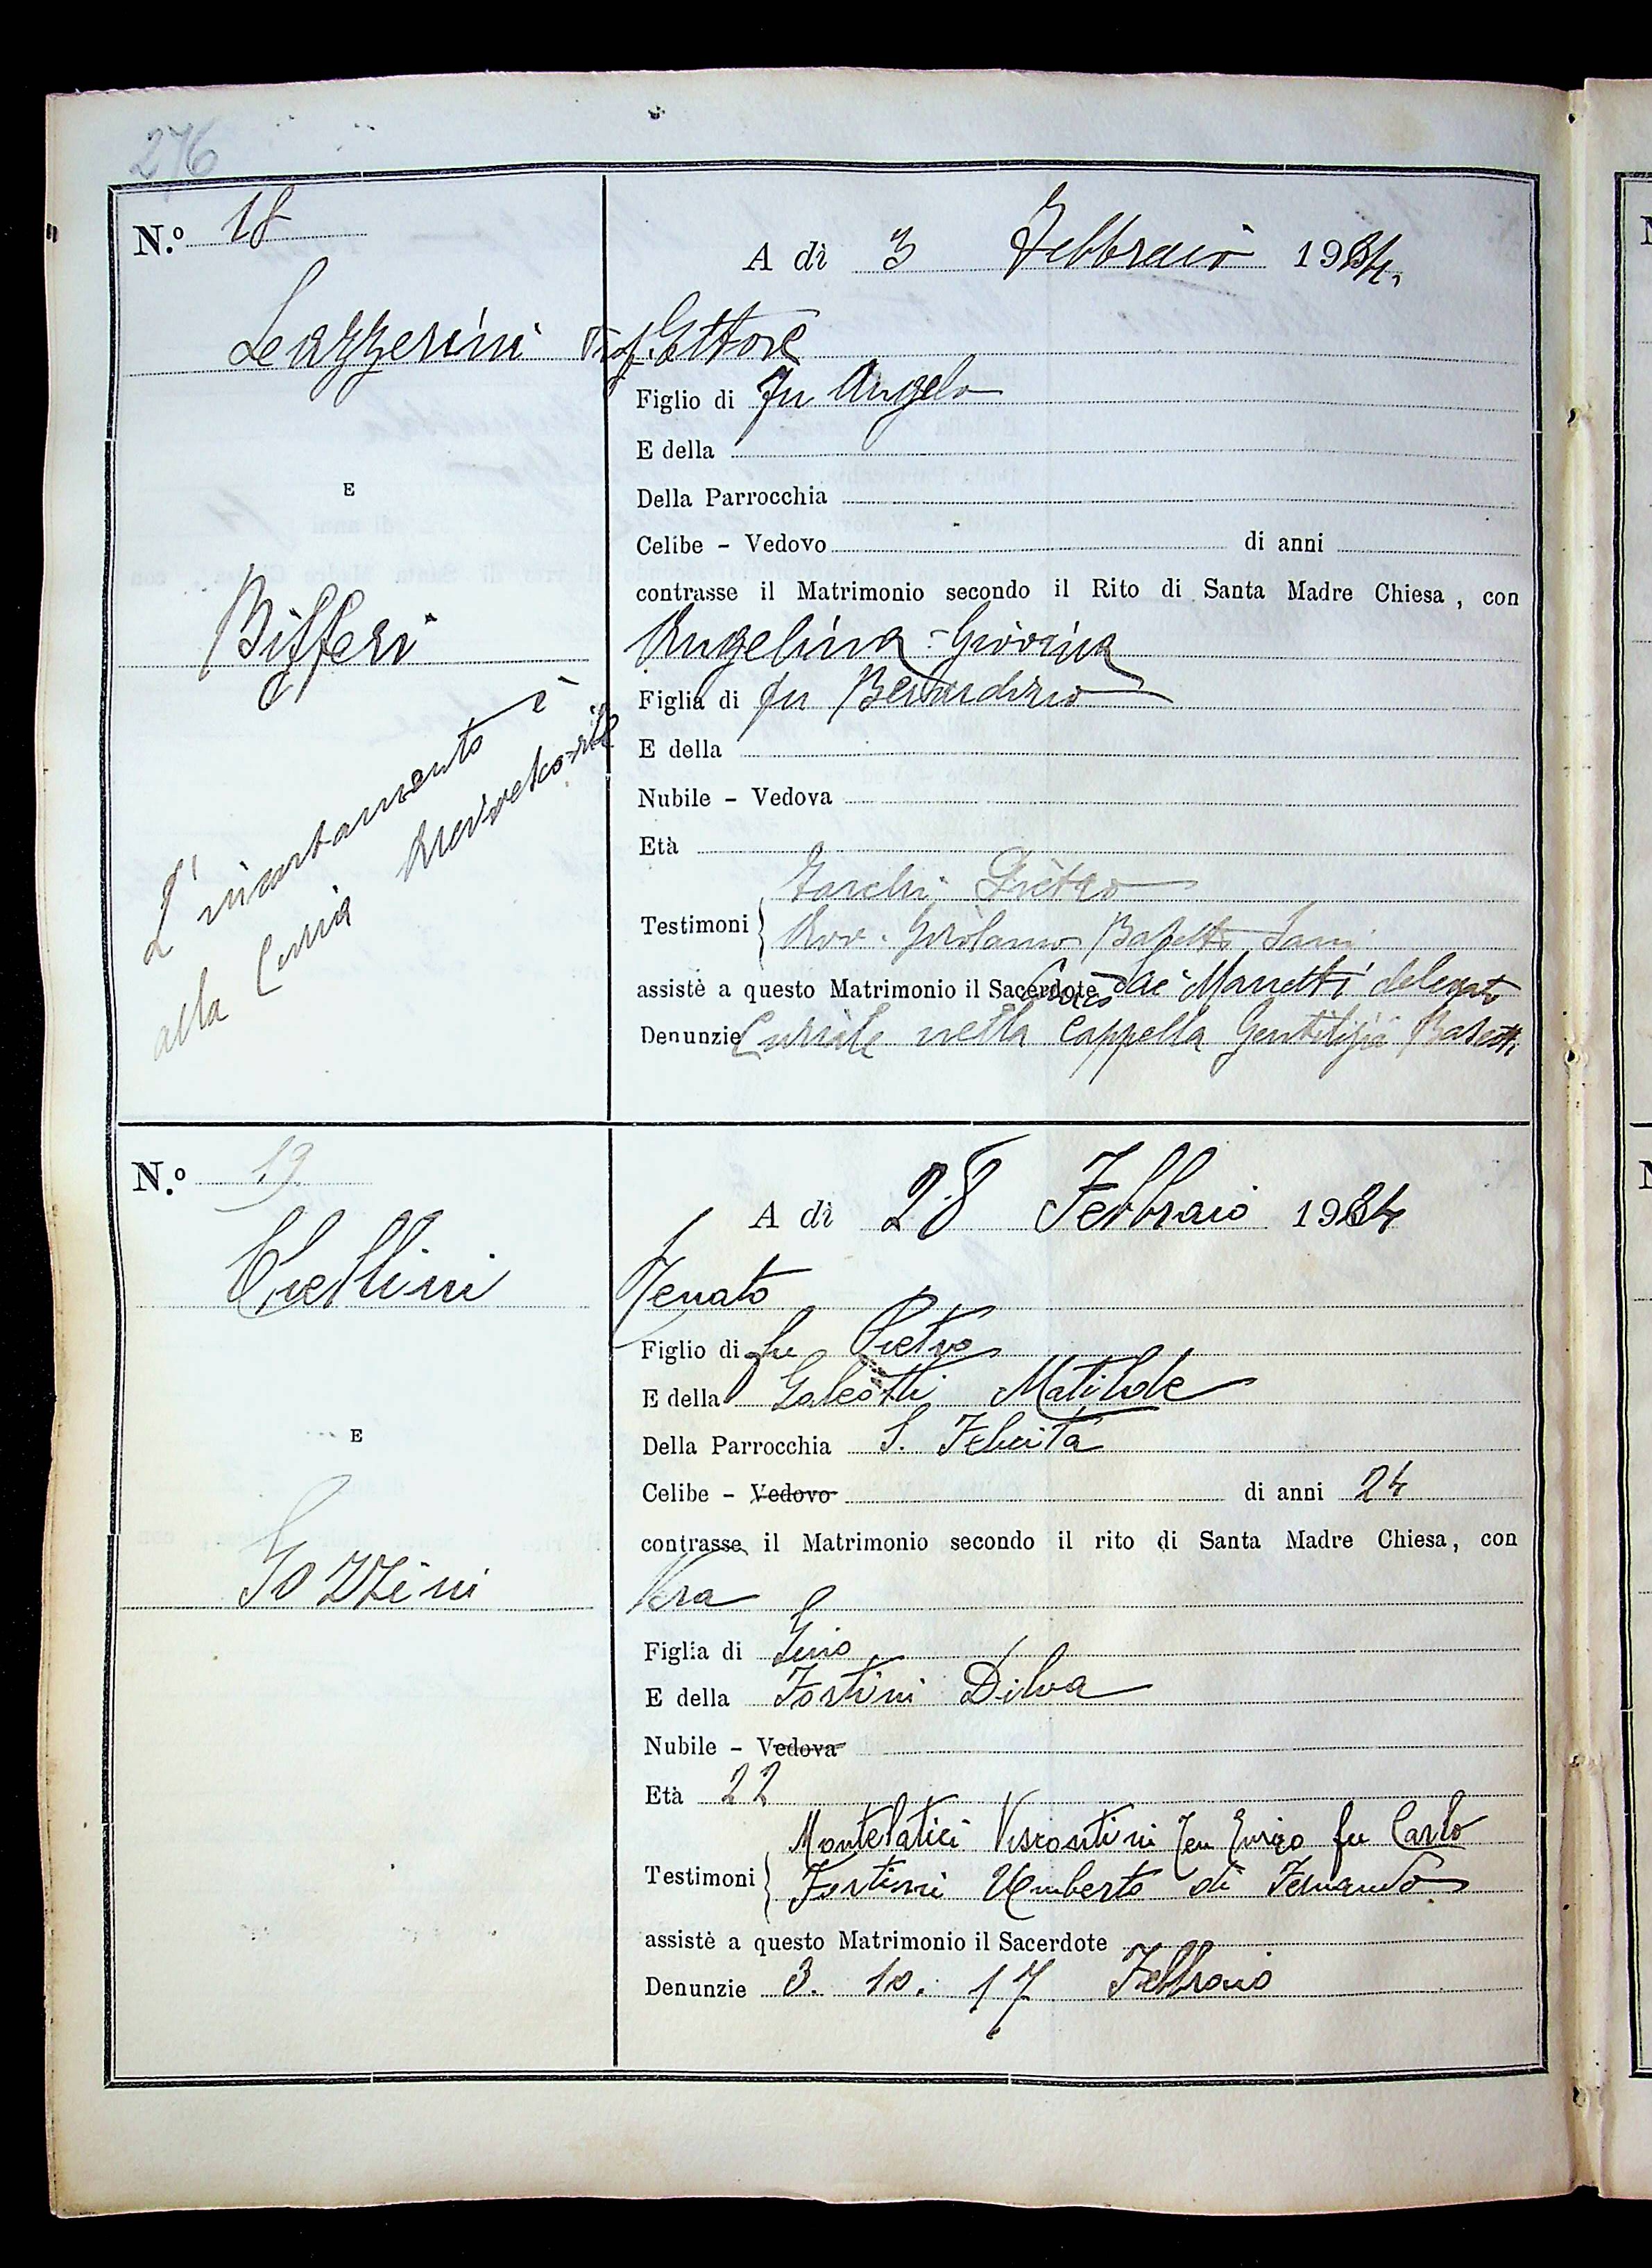 276
N.º 18
A dì 3 Febbraio 1934.
Lazzerini Prof. Ettore
Figlio di fu Angelo
E della
Della Parrocchia
E
Celibe - Vedovo di anni
contrasse il Matrimonio secondo il Rito di Santa Madre Chiesa, con
Bifferi
Angelina - Giovina
Figlia di fu Bernardino
E della
Nubile - Vedova
Età
L'incartamento è
alla Curia Arcivescovile
Testimoni Torchi Pietro
Avv. Girolamo Basetti Sani
assistè a questo Matrimonio il Sacerdote Marretti delegato
Denunzie Curiale nella Cappella Gentilizia Basetti
N.º 19
A dì 28 Febbraio 1934
Cuellini
Renato
Figlio di fu Pietro
E della Galeotti Matilde
Della Parrocchia S. Felicita
E
Celibe - Vedovo di anni 24
contrasse il Matrimonio secondo il rito di Santa Madre Chiesa, con
Gozzini
Vera
Figlia di Gino
E della Fortini Dilva
Nubile - Vedova
Età 22
Testimoni Montelatici Viscontini Enrico fu Carlo
Fortini Umberto di Fernando
assistè a questo Matrimonio il Sacerdote
Denunzie 3. 10. 17 Febbraio